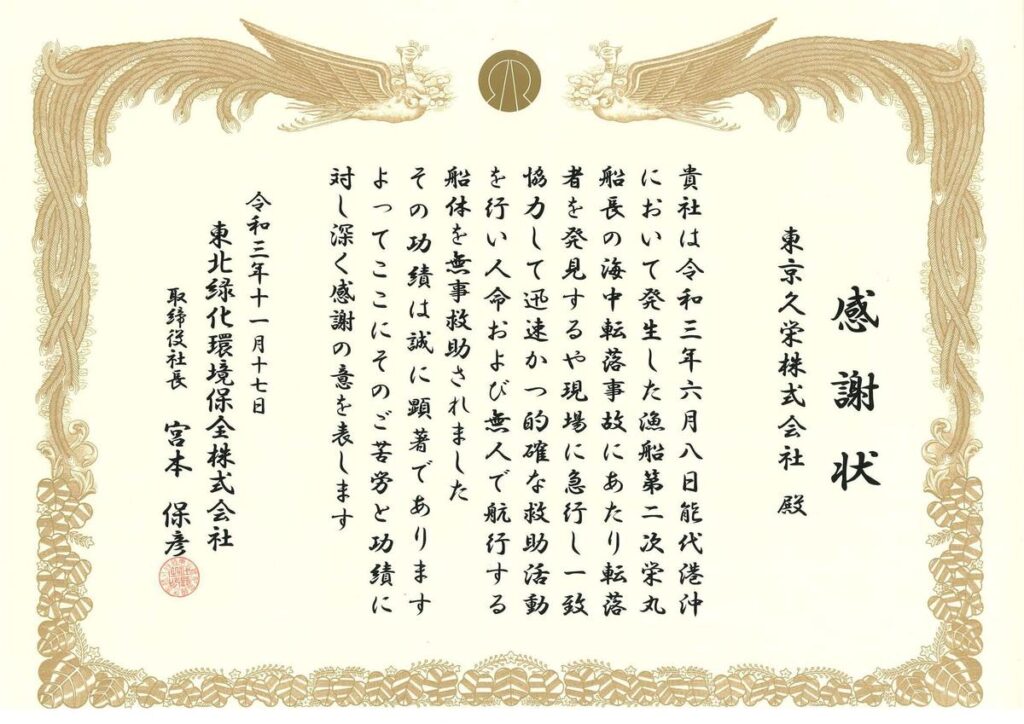 感謝状
東京久栄株式会社 殿
貴社は令和三年六月八日能代港沖
において発生した漁船第二次栄丸
船長の海中転落事故にあたり転落
者を発見するや現場に急行し一致
協力して迅速かつ的確な救助活動
を行い人命および無人で航行する
船体を無事救助されました
その功績は誠に顕著であります
よってここにそのご苦労と功績に
対し深く感謝の意を表します
令和三年十一月十七日
東北緑化環境保全株式会社
取締役社長 宮本 保彦